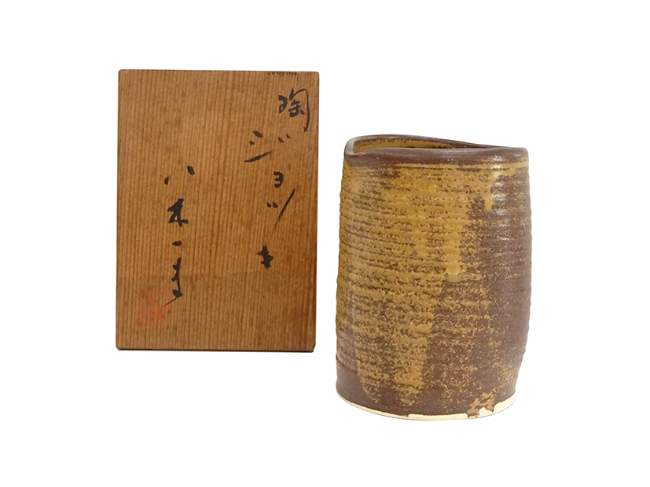 陶ジョッキ
八木一夫